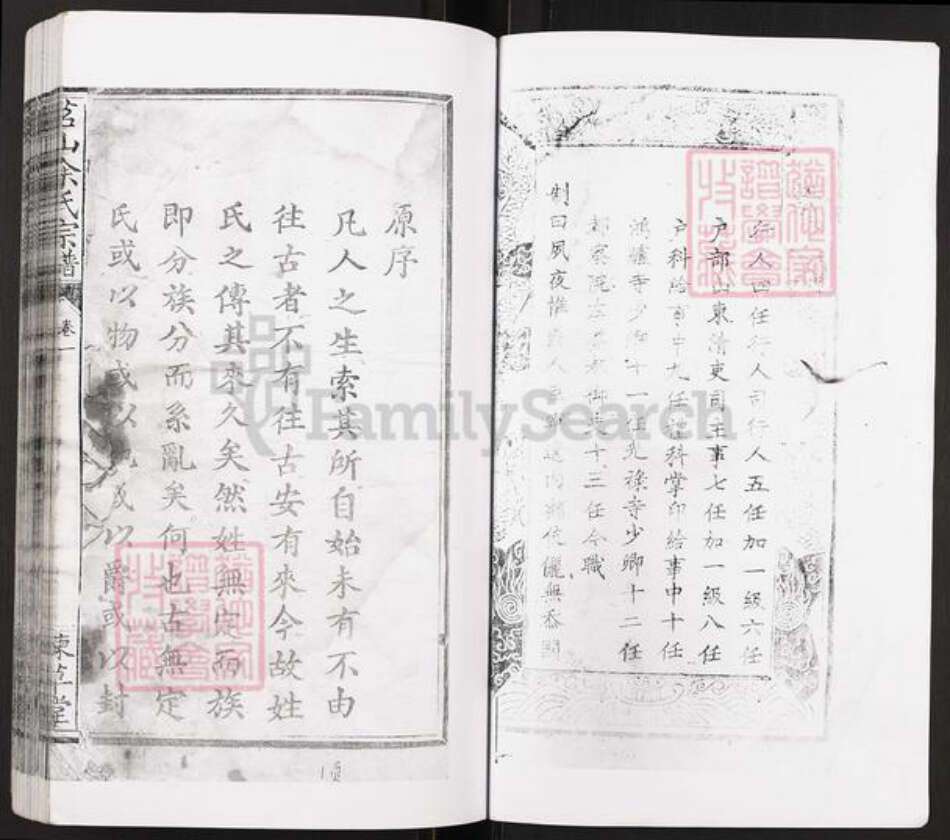 行人四任行人司行人五任加一級六任
户部山東清吏司主事七任加一級八任
户科給事中九任禮科掌印給事中十任
鴻臚寺少卿十一任光祿寺少卿十二任
都察院左 都御史十三任今職
制曰夙夜惟 人 內 伉儷無忝
原序
凡人之生索其所自始未有不由
往古者不有往古安有來今故姓
氏之傳其來久矣然姓無定而族
即分族分而系亂矣何也古無定
氏或以物或以 或以爵或以封
茗山余氏宗譜
卷一
東草堂
FamilySearch